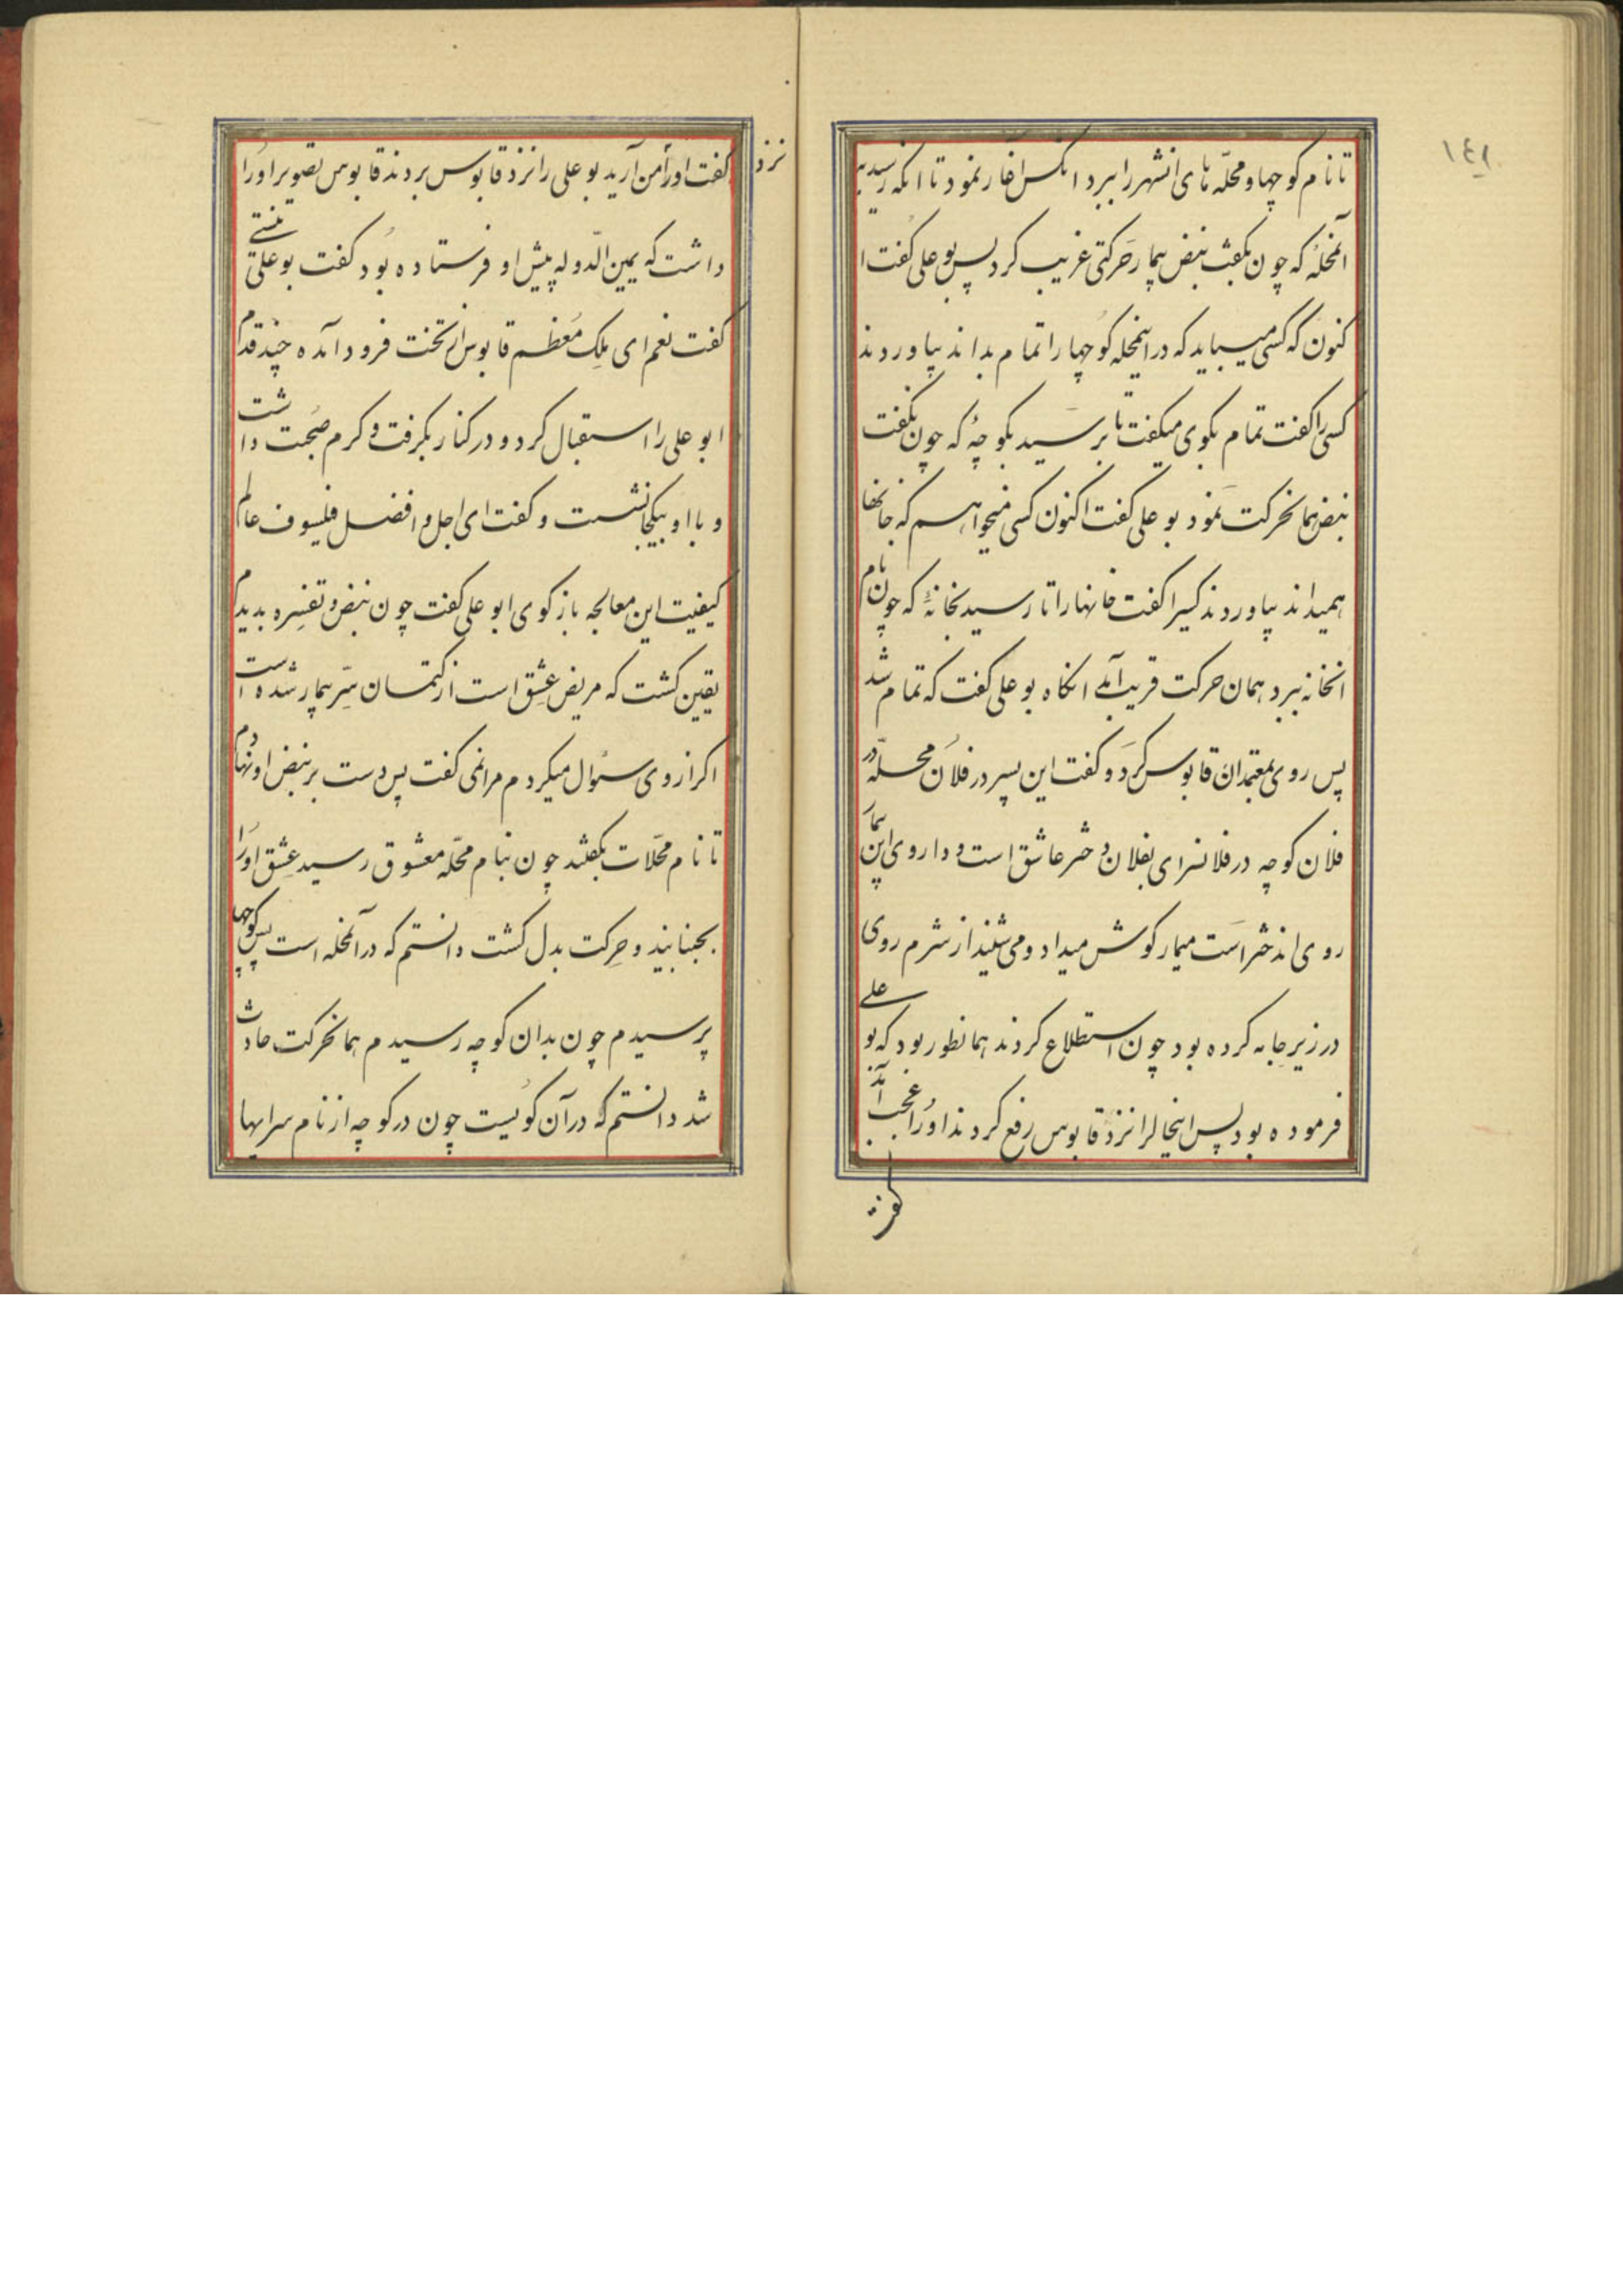 ١٤١
تا نام کوچها و محلّه های انشهر را ببرد انکس اغاز نمود تا انکه رسید به
آنمحلهٔ که چون بکفت نبض بیمار حرکتی غریب کرد پس بو علی کفت ا
کنون که کسی میباید که در اینمحله کوچها را تمام بداند بیاوردند
کسی را کفت تمام بکوی میکفت تا برسید بکوچهٔ که چون بکفت
نبض همانحرکت نمود بو علی کفت اکنون کسی میخواهم که خانها
همیداند بیاوردند کسیرا کفت خانها را تا رسید بخانهٔ که چون نام
انخانه ببرد همان حرکت قریب آمد انکاه بو علی کفت که تمام شد
پس روی بمعتمدان قابوس کرد و کفت این پسر در فلان محلّه در
فلان کوچه در فلانسرای بفلان دختر عاشق است و داروی این بیمار
روی اندختر است بیمار کوش میداد و می شنید از شرم روی
در زیر جامه کرده بود چون استطلاع کردند همانطور بود که بو علی
فرموده بود پس اینحالرا نزد قابوس رفع کردند او را عجب آمد
کفت
نزد
کفت او را بمن آرید بو علی را نزد قابوس بردند قابوس تصویر او را
داشت که یمین الدّوله پیش او فرستاده بود کفت بو علی توئی
کفت نعم ای ملک معظم قابوس از تخت فرود آمده چند قدم
ابو علی را استقبال کرد و در کنار بکرفت و کرم صحبت داشت
و با او بیکجا نشست و کفت ای اجل و افضل فیلسوف عالم
کیفیت این معالجه باز کوی ابو علی کفت چون نبض و تفسره بدیدم
یقین کشت که مریض عشق است از کتمان سرّ بیمار شده است
اکر از وی سئوال میکردم مرا نمی کفت پس دست بر نبض او نهادم
تا نام محلّات بکفتند چون بنام محلّه معشوق رسید عشق او را
بجنبانید و حرکت بدل کشت دانستم که در آنمحله است پس کوچها
پرسیدم چون بدان کوچه رسیدم همانحرکت حادث
شد دانستم که در آن کویست چون در کوچه از نام سرایها